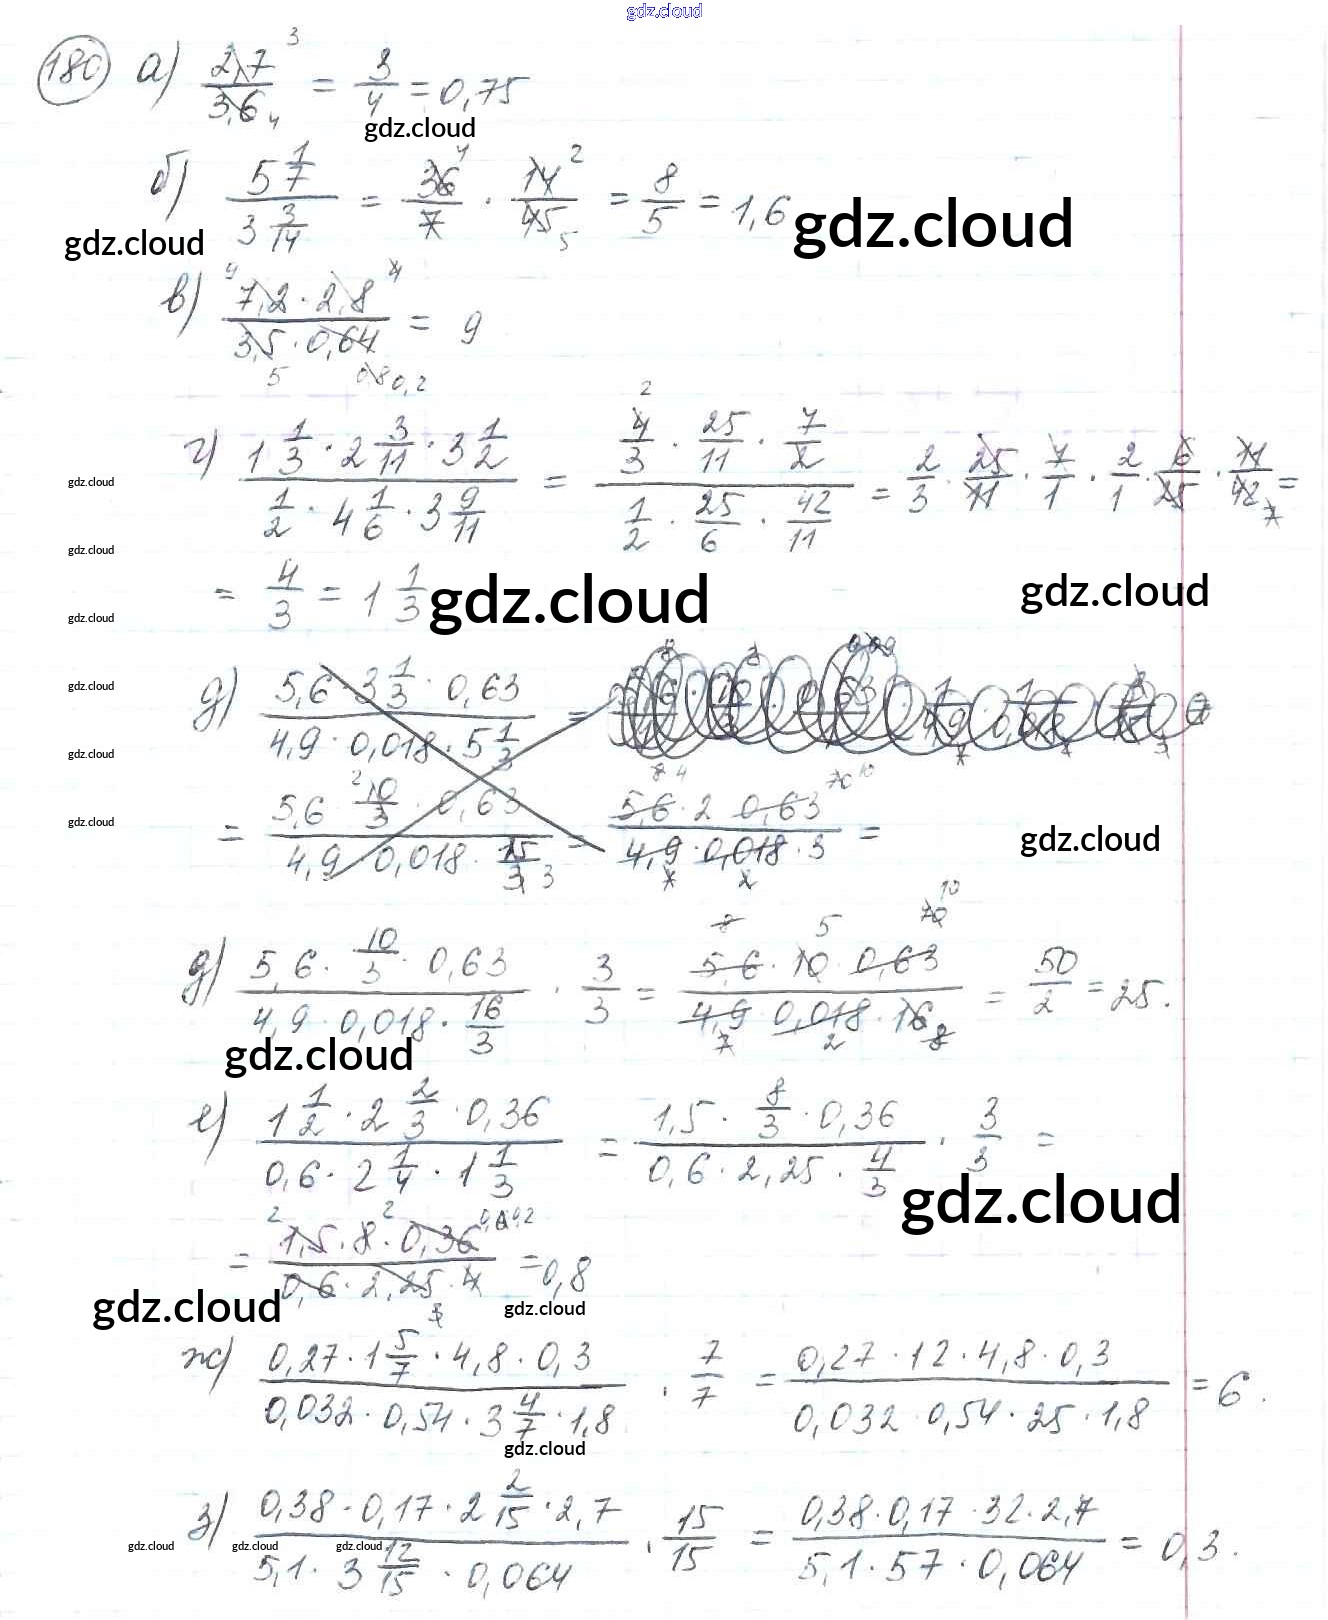 gdz.cloud
180 а) 2,7/3,6 = 3/4 = 0,75
gdz.cloud
б) 5 1/7 / 3 3/14 = 36/7 · 14/45 = 8/5 = 1,6 gdz.cloud
gdz.cloud
в) 7,2 · 2,8 / 3,5 · 0,64 = 9
г) 1 1/3 · 2 3/11 · 3 1/2 / 1/2 · 4 1/6 · 3 9/11 = 4/3 · 25/11 · 7/2 / 1/2 · 25/6 · 42/11 = 2/3 · 25/11 · 7/1 · 2/1 · 6/25 · 11/42 =
gdz.cloud
gdz.cloud
= 4/3 = 1 1/3 gdz.cloud gdz.cloud
gdz.cloud
д) 5,6 · 3 1/3 · 0,63 / 4,9 · 0,018 · 5 1/3 =
gdz.cloud
gdz.cloud
= 5,6 · 10/3 · 0,63 / 4,9 · 0,018 · 15/3 = 5,6 · 2 · 0,63 / 4,9 · 0,018 · 3 =
gdz.cloud gdz.cloud
д) 5,6 · 10/3 · 0,63 / 4,9 · 0,018 · 16/3 · 3/3 = 5,6 · 10 · 0,63 / 4,9 · 0,018 · 16 = 50/2 = 25.
gdz.cloud
е) 1 1/2 · 2 2/3 · 0,36 / 0,6 · 2 1/4 · 1 1/3 = 1,5 · 8/3 · 0,36 / 0,6 · 2,25 · 4/3 · 3/3 =
gdz.cloud
= 1,5 · 8 · 0,36 / 0,6 · 2,25 · 4 = 0,8
gdz.cloud gdz.cloud
ж) 0,27 · 1 5/7 · 4,8 · 0,3 / 0,032 · 0,54 · 3 4/7 · 1,8 · 7/7 = 0,27 · 12 · 4,8 · 0,3 / 0,032 · 0,54 · 25 · 1,8 = 6.
gdz.cloud
з) 0,38 · 0,17 · 2 2/15 · 2,7 / 5,1 · 3 12/15 · 0,064 · 15/15 = 0,38 · 0,17 · 32 · 2,7 / 5,1 · 57 · 0,064 = 0,3.
gdz.cloud gdz.cloud gdz.cloud